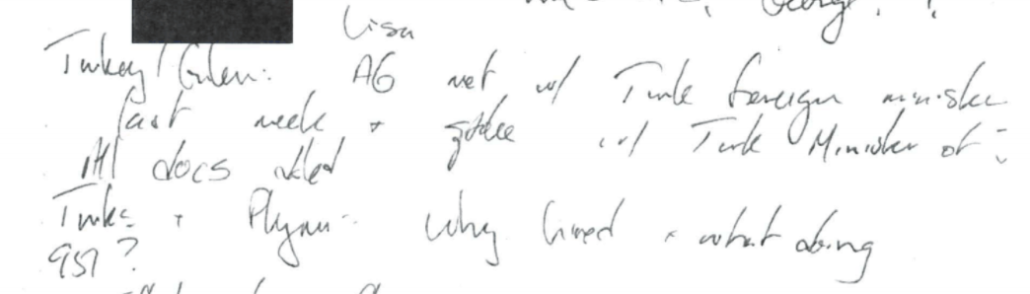 George. ?
Lisa
Turkey/Gulen: AG met w/ Turk foreign minister
last week + spoke w/ Turk Minister of J
All docs
Turks + Flynn: Why hired + what doing
951?